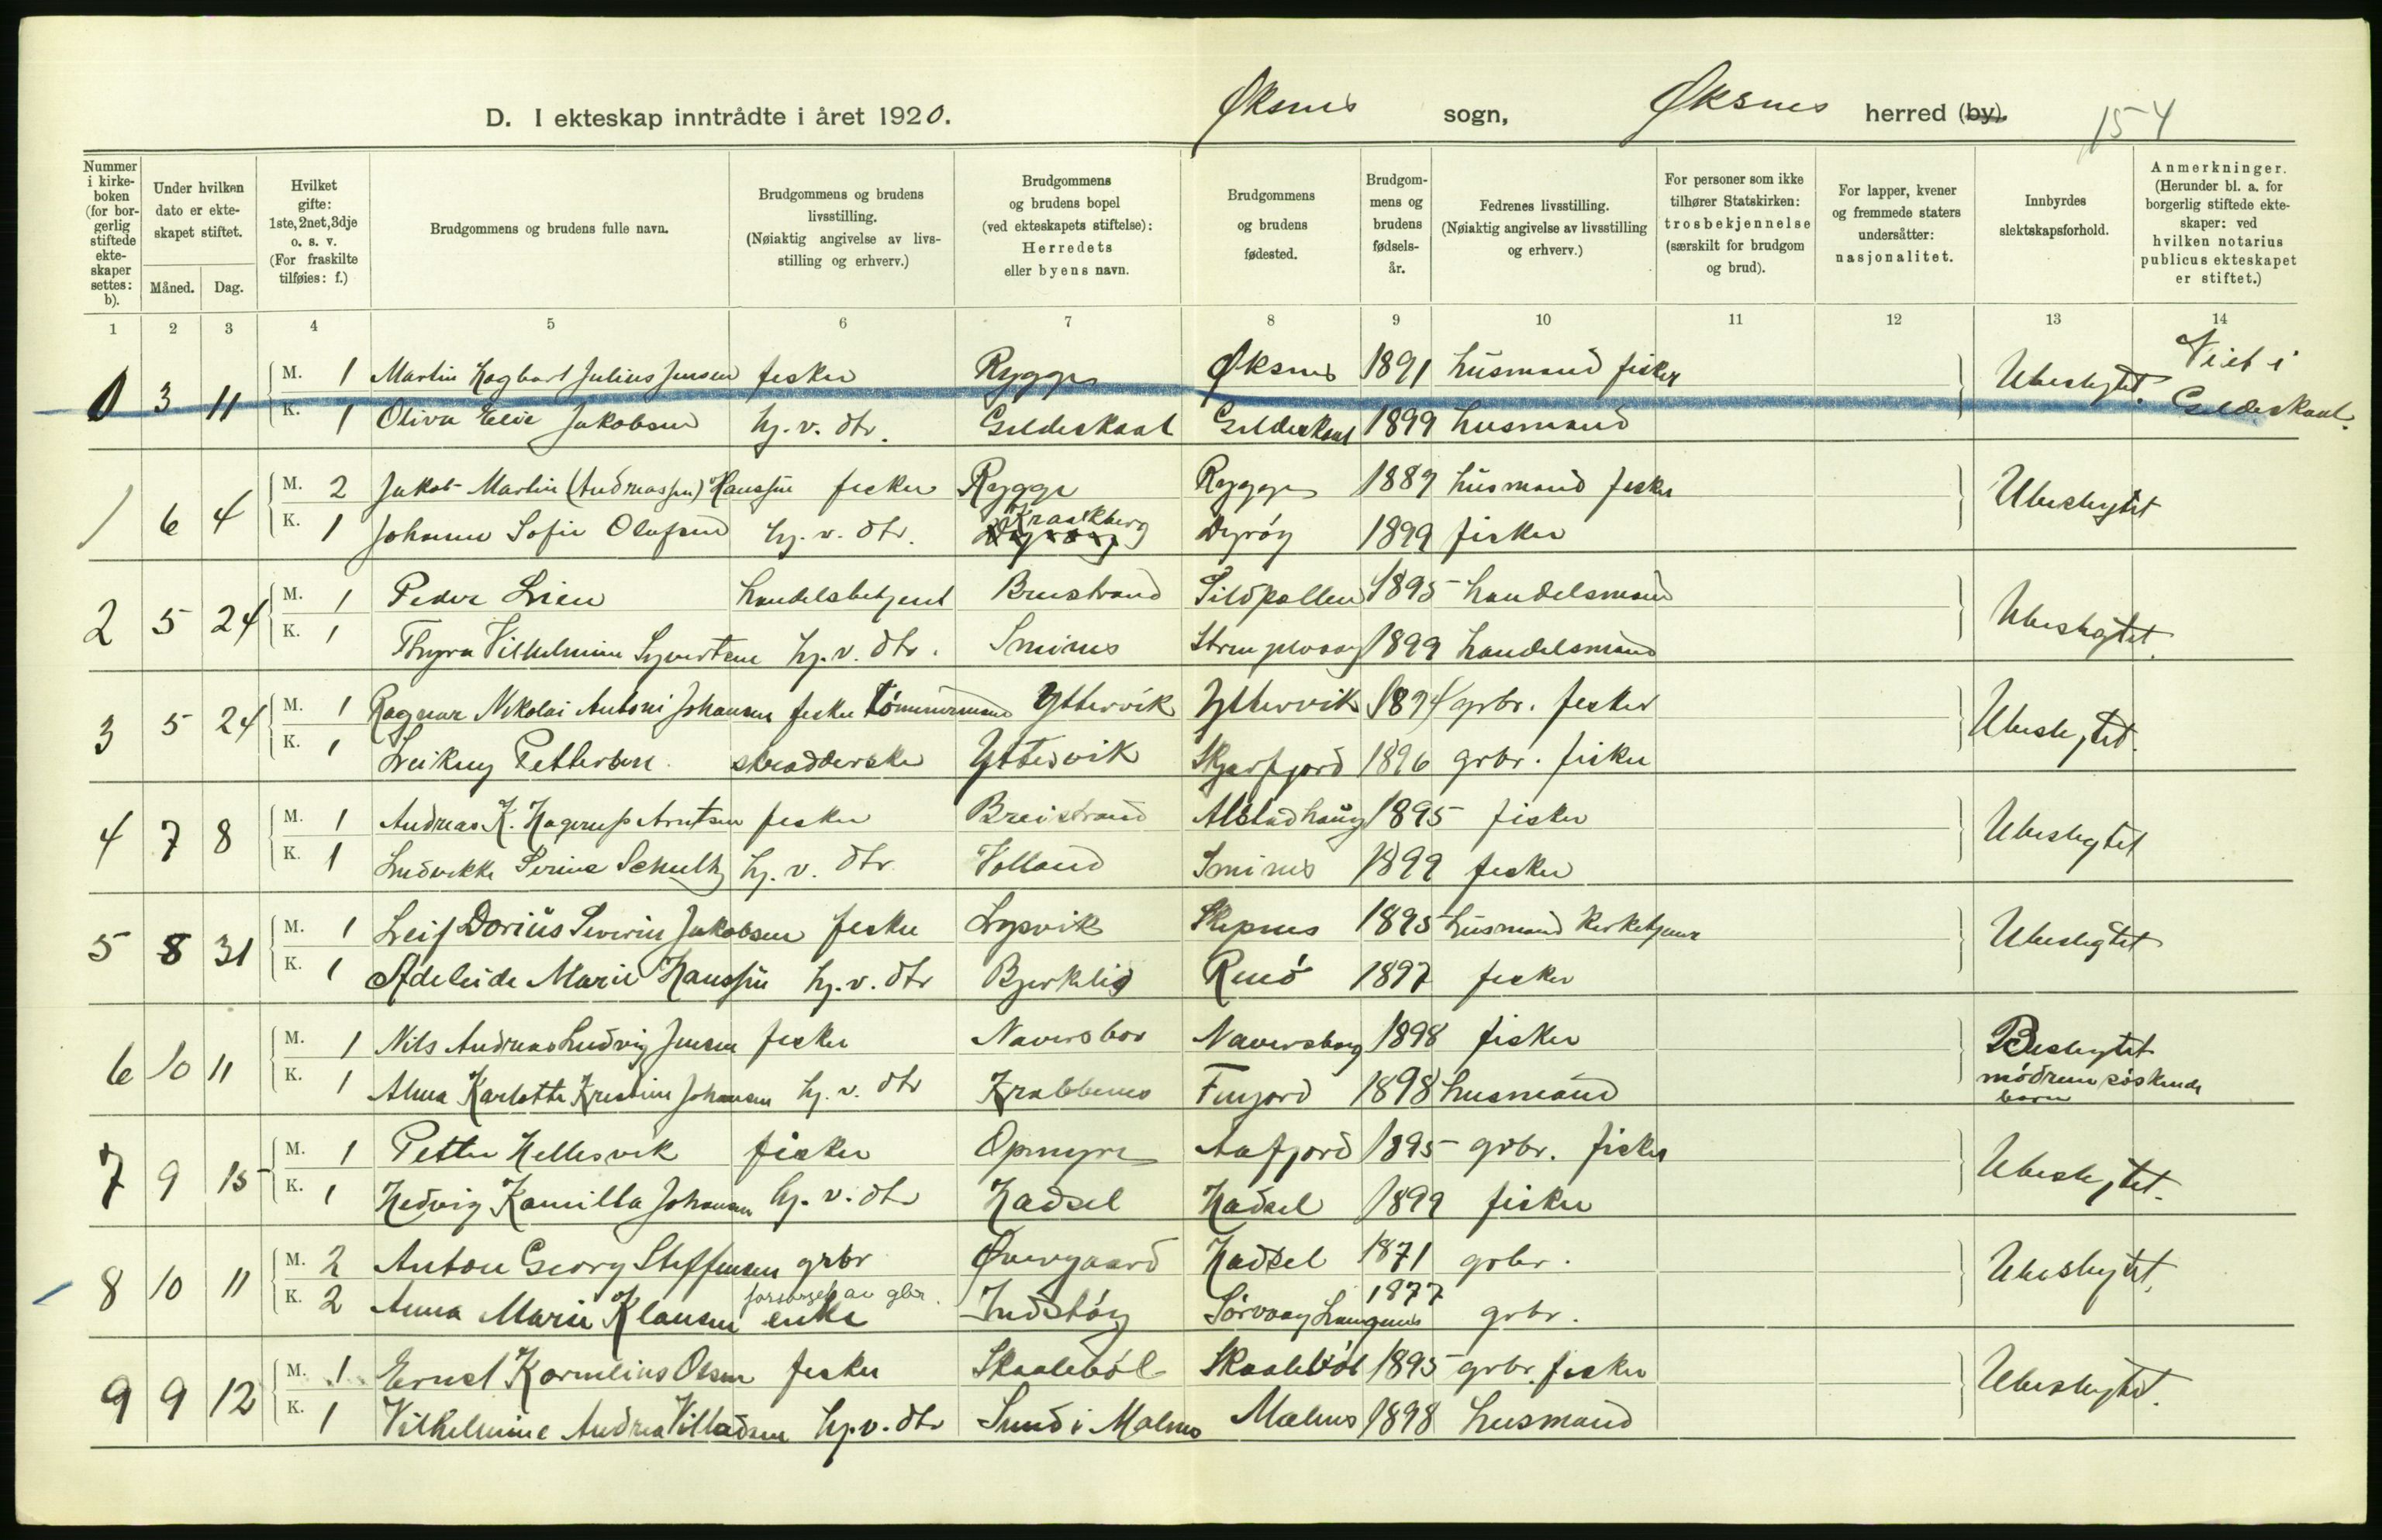 D. I ekteskap inntrådte i året 1920. Øksnes sogn, Øksnes herred (by). 154
Nummer i kirke-boken (for bor-gerlig stiftede ekte-skaper settes: b).
Under hvilken dato er ekte-skapet stiftet.
Måned. Dag.
Hvilket gifte: 1ste, 2net, 3dje o. s. v. (For fraskilte tilføies: f.)
Brudgommens og brudens fulle navn.
Brudgommens og brudens livsstilling. (Nøiaktig angivelse av livs-stilling og erhverv.)
Brudgommens og brudens bopel (ved ekteskapets stiftelse): Herredets eller byens navn.
Brudgommens og brudens fødested.
Brudgom-mens og brudens fødsels-år.
Fedrenes livsstilling. (Nøiaktig angivelse av livsstilling og erhverv.)
For personer som ikke tilhører Statskirken: trosbekjennelse (særskilt for brudgom og brud).
For lapper, kvener og fremmede staters undersåtter: nasjonalitet.
Innbyrdes slektskapsforhold.
Anmerkninger. (Herunder bl. a. for borgerlig stiftede ekte-skaper: ved hvilken notarius publicus ekteskapet er stiftet.)
1 2 3 4 5 6 7 8 9 10 11 12 13 14
0 3 11 M. 1 Martin Hagbart Julius Jensen fisker Rygge Øksnes 1891 husmand fisker Ubeslegtet. Viet i Gildeskaal.
K. 1 Oliva Elvie Jakobsen hj. v. dtr. Gildeskaal Gildeskaal 1899 husmand
1 6 4 M. 2 Jakob Martin (Andreassen) Hanssen fisker Rygge Rygge 1889 husmand fisker Ubeslegtet
K. 1 Johanne Sofie Olufsen hj. v. dtr. Kraakberg Dyrøy 1899 fisker
2 5 24 M. 1 Peder Lien handelsbetjent Breistrand Sildpollen 1895 handelsmand Ubeslegtet.
K. 1 Thyra Vilhelmine Syvertsen hj. v. dtr. Smines 1899 handelsmand
3 5 24 M. 1 Ragnar Nikolai Antoni Johansen fisker tömmermand Yttervik Yttervik 1894 grbr. fisker Ubeslegtet.
K. 1 Leikny Pettersen. skrædderske Yttervik Skjærfjord 1896 grbr. fisker
4 7 8 M. 1 Andreas K. Hagerup Arntsen fisker Breistrand Alstadhaug 1895 fisker Ubeslegtet
K. 1 Ludvikke Serine Schultz hj. v. dtr Volland Smines 1899 fisker
5 8 31 M. 1 Leif Dorius Severin Jakobsen fisker Lysvik Skipnes 1895 husmand kirketjener Ubeslegtet
K. 1 Adeleide Marie Hanssen hj. v. dtr Bjerklid Renö 1897 fisker
6 10 11 M. 1 Nils Andreas Ludvig Jensen fisker 1898 fisker Beslegtet mödrene söskende barn
K. 1 Alma Karlotte Kristine Johansen hj. v. dtr Krabbenes Finjord 1898 husmand
7 9 15 M. 1 Petter Hellesvik fisker Opmyre Aafjord 1895 grbr. fisker Ubeslegtet.
K. 1 Hedvig Kamilla Johansen hj. v. dtr Hadsel Hadsel 1899 fisker
8 10 11 M. 2 Anton Georg Steffensen grbr Övergaard Hadsel 1871 grbr. Ubeslegtet.
K. 2 Anna Marie Klausen forsörget av gbr. enke Indstöy Sörvaag Langenes 1877 grbr.
9 9 12 M. 1 Ernst Kornelius Olsen fisker Skaaleböl Skaaleböl 1895 grbr. fisker Ubeslegtet.
K. 1 Vilhelmine Andrea Villadsen hj. v. dtr Sund i Malnes Malnes 1898 husmand